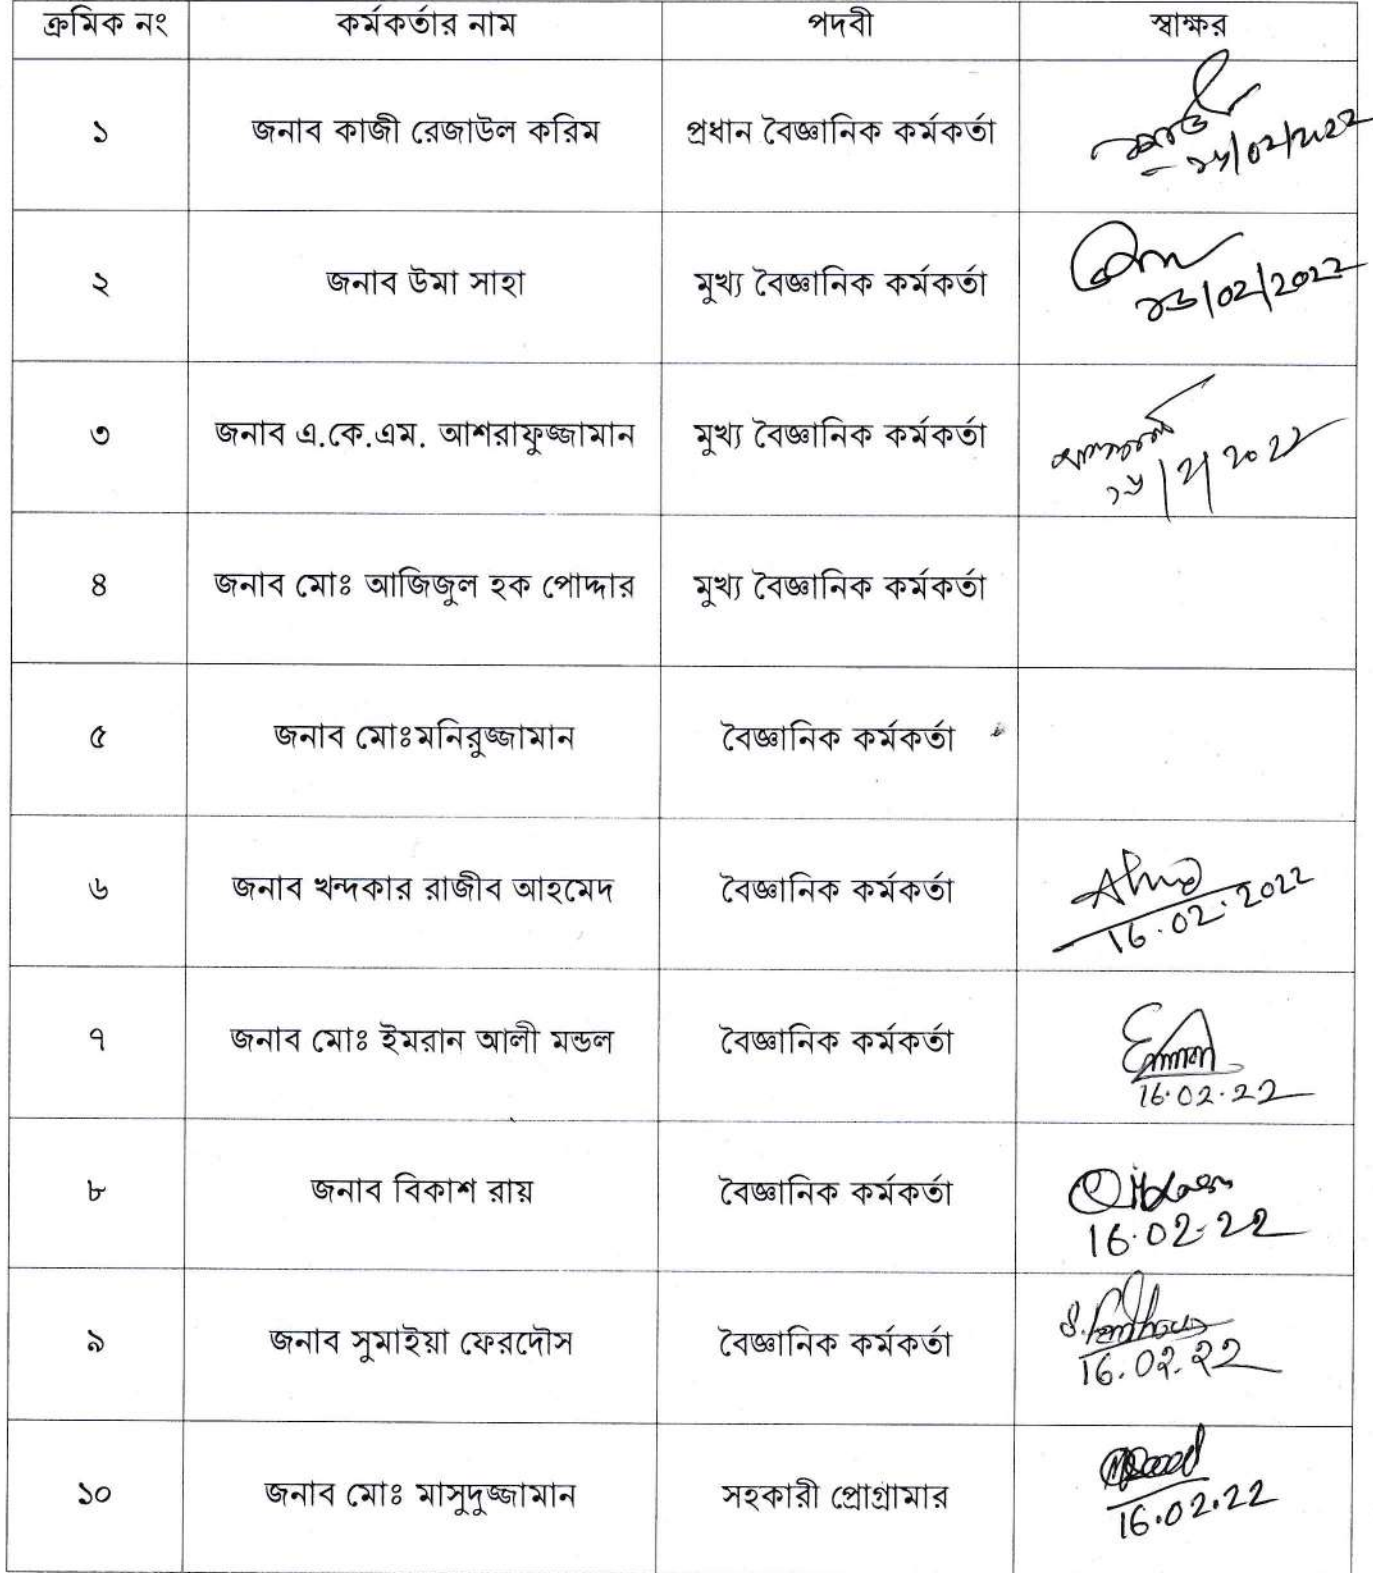 ক্রমিক নং কর্মকর্তার নাম পদবী স্বাক্ষর
১ জনাব কাজী রেজাউল করিম প্রধান বৈজ্ঞানিক কর্মকর্তা
২ জনাব উমা সাহা মুখ্য বৈজ্ঞানিক কর্মকর্তা
৩ জনাব এ.কে.এম. আশরাফুজ্জামান মুখ্য বৈজ্ঞানিক কর্মকর্তা
৪ জনাব মোঃ আজিজুল হক পোদ্দার মুখ্য বৈজ্ঞানিক কর্মকর্তা
৫ জনাব মোঃমনিরুজ্জামান বৈজ্ঞানিক কর্মকর্তা
৬ জনাব খন্দকার রাজীব আহমেদ বৈজ্ঞানিক কর্মকর্তা
16.02.2022
৭ জনাব মোঃ ইমরান আলী মন্ডল বৈজ্ঞানিক কর্মকর্তা
16.02.22
৮ জনাব বিকাশ রায় বৈজ্ঞানিক কর্মকর্তা
16.02.22
৯ জনাব সুমাইয়া ফেরদৌস বৈজ্ঞানিক কর্মকর্তা
16.02.22
১০ জনাব মোঃ মাসুদুজ্জামান সহকারী প্রোগ্রামার
16.02.22